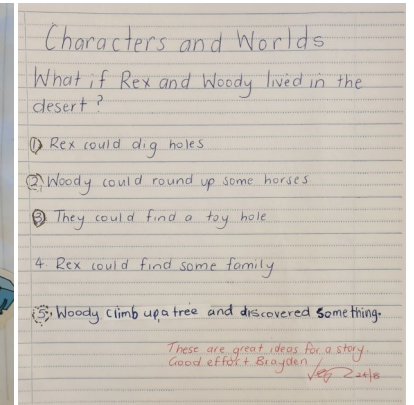 Characters and Worlds
What if Rex and Woody lived in the
desert?
① Rex could dig holes
② Woody could round up some horses
③ They could find a toy hole
4. Rex could find some family
⑤. Woody climb up a tree and discovered something.
These are great ideas for a story.
Good effort Brayden